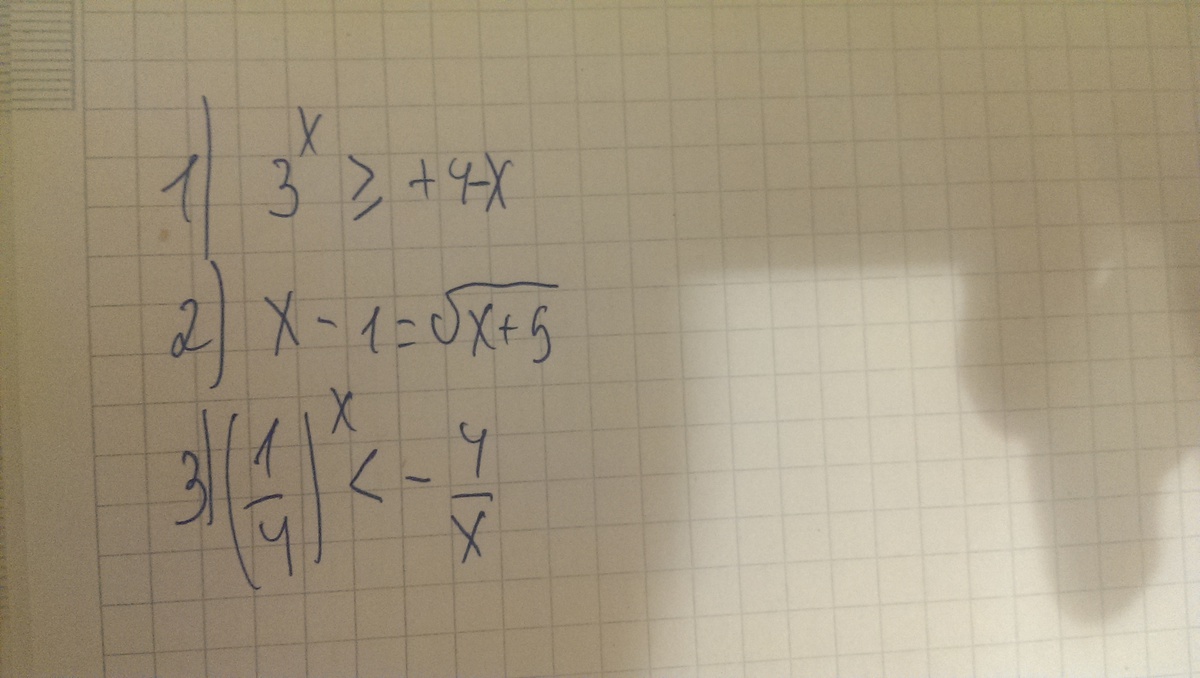 1) 3^x ≥ +4-x
2) x - 1 = √(x+5)
3) (1/4)^x < - 4/x